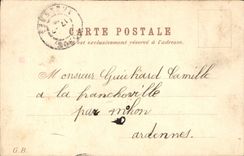 CARTE POSTALE
est exclusivement réservé à l'adresse.
Monsieur Guichard Camille
a la franchoville
par
ardennes.
G.B.